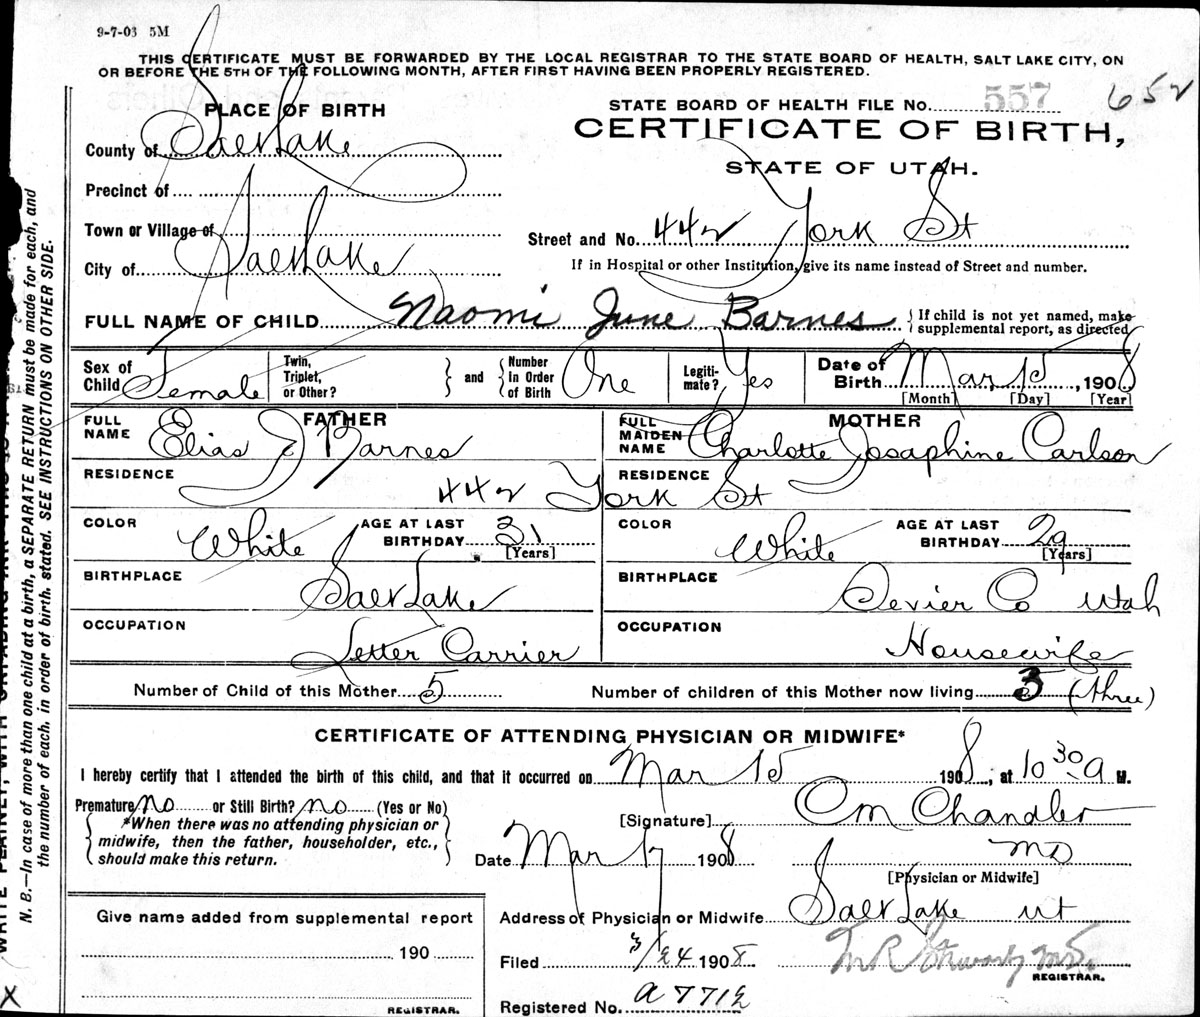 9-7-03 5M
THIS CERTIFICATE MUST BE FORWARDED BY THE LOCAL REGISTRAR TO THE STATE BOARD OF HEALTH, SALT LAKE CITY, ON
OR BEFORE THE 5TH OF THE FOLLOWING MONTH, AFTER FIRST HAVING BEEN PROPERLY REGISTERED.
PLACE OF BIRTH
STATE BOARD OF HEALTH FILE No. 557 652
CERTIFICATE OF BIRTH,
STATE OF UTAH.
County of Salt Lake
Precinct of
Town or Village of
City of Salt Lake
Street and No. 442 York St
If in Hospital or other Institution, give its name instead of Street and number.
FULL NAME OF CHILD Naomi June Barnes { If child is not yet named, make supplemental report, as directed
Sex of Child Female Twin, Triplet, or Other? } and { Number In Order of Birth One Legiti-mate? Yes Date of Birth Mar 15, 1908
[Month] [Day] [Year]
FATHER
FULL NAME Elias J Barnes
MOTHER
FULL MAIDEN NAME Charlotte Josaphine Carlson
RESIDENCE 442 York St RESIDENCE
COLOR White AGE AT LAST BIRTHDAY 31 [Years]
COLOR White AGE AT LAST BIRTHDAY 29 [Years]
BIRTHPLACE Salt Lake
BIRTHPLACE Sevier Co Utah
OCCUPATION Letter Carrier
OCCUPATION Housewife
Number of Child of this Mother 5 Number of children of this Mother now living 3 (three)
CERTIFICATE OF ATTENDING PHYSICIAN OR MIDWIFE*
I hereby certify that I attended the birth of this child, and that it occurred on Mar 15 1908, at 10 30 a M.
Premature no or Still Birth? no (Yes or No)
{ *When there was no attending physician or midwife, then the father, householder, etc., should make this return. }
[Signature] C M Chandler
Date Mar 17 1908 MD
[Physician or Midwife]
Address of Physician or Midwife Salt Lake Ut
Give name added from supplemental report
190
REGISTRAR.
Filed 3/24 1908
REGISTRAR.
Registered No. a 7712
N. B.—In case of more than one child at a birth, a SEPARATE RETURN must be made for each, and
the number of each, in order of birth, stated. SEE INSTRUCTIONS ON OTHER SIDE.
X